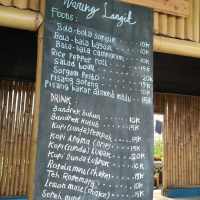 Waring Langit
Foods:
Bola-bola sorgum 10K
Bala-bala bayam 10K
Bala-bala campignon 10K
Rice Pepper Roll 15K
Salad bowl 15K
Sorgum Porbo 20K
Pisang goreng 15K
Pisang bakar almond madu 18K
DRINK
Bandrek bubun 10K
Bandrek kutub 19K
Kopi (sunda) Tempak 15K
Kopi Aroma (drip) 15K
Kopi (sunda) Lubak 20K
Kopi (sunda) Lubak
Rosela mint (shake) 15K
Teh Rosemary 10K
Lemon mint (shake) 15K
Sereh mint